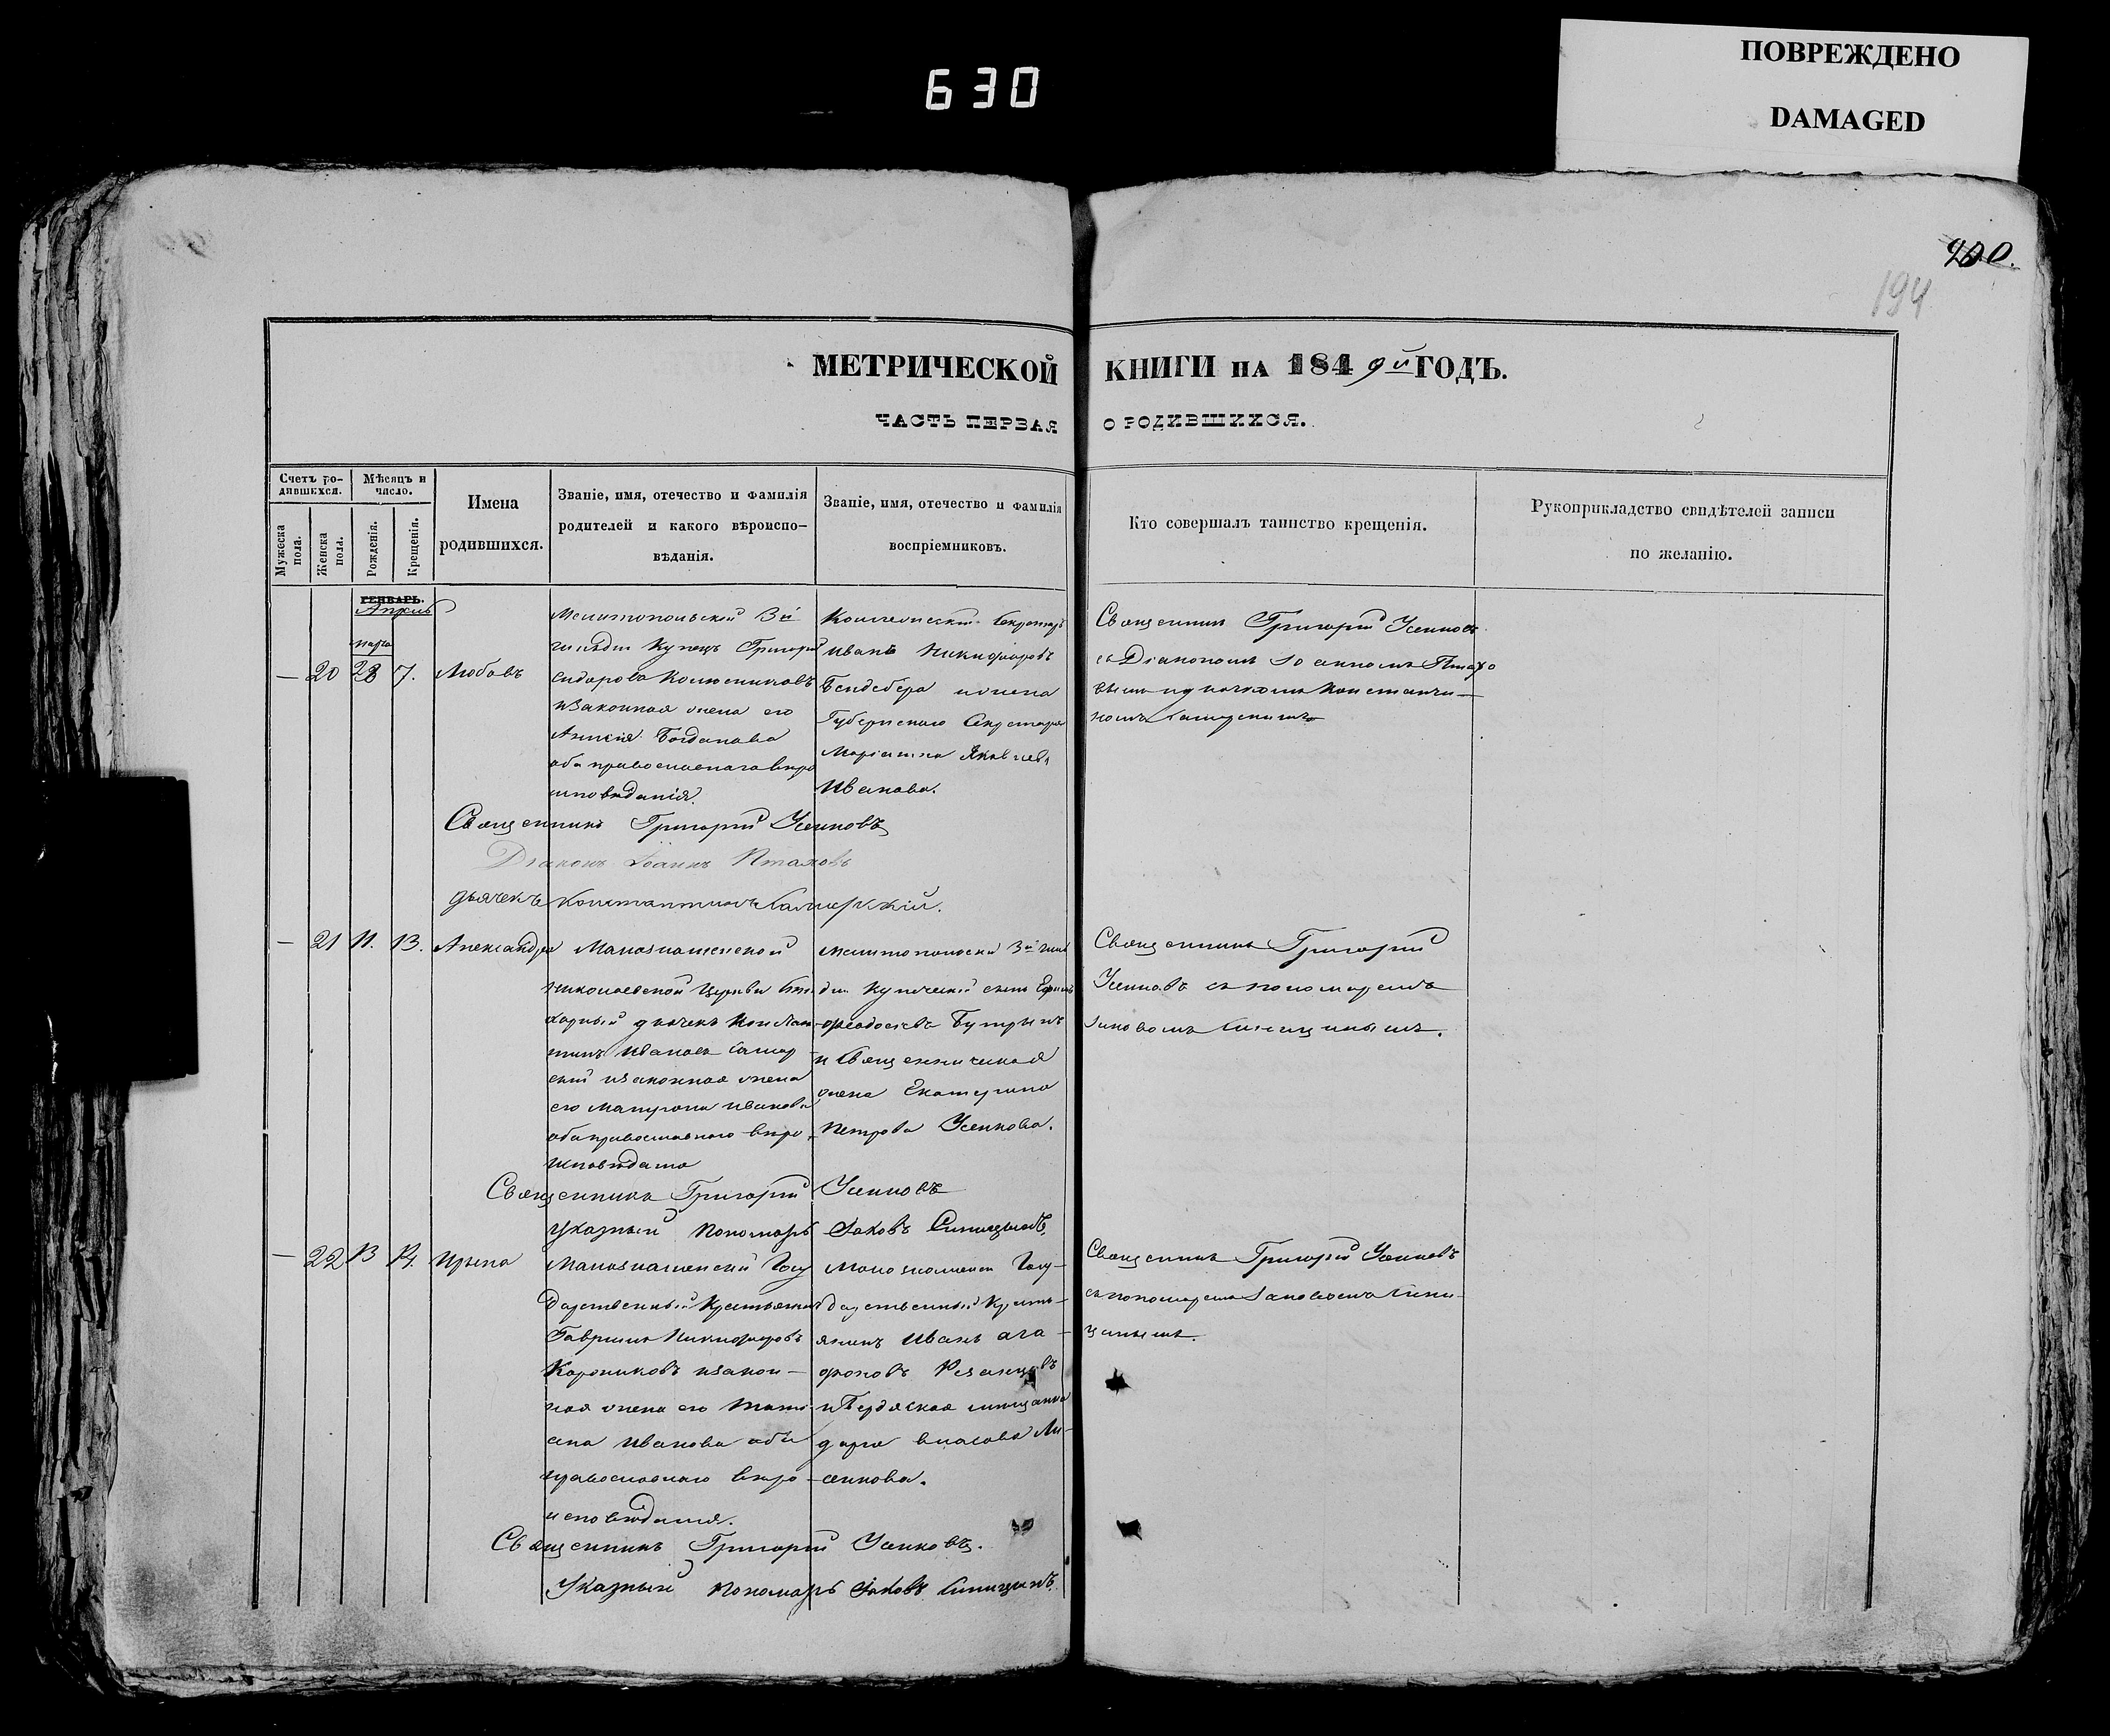 ПОВРЕЖДЕНО
DAMAGED
630
200.
194
МЕТРИЧЕСКОЙ КНИГИ НА 1849й ГОДЪ.
ЧАСТЬ ПЕРВАЯ О РОДИВШИХСЯ.
Счетъ родившихся.
Мужеска пола.
Женска пола.
Мѣсяцъ и число.
Рожденія.
Крещенія.
Имена родившихся.
Званіе, имя, отечество и фамилія
родителей и какого вѣроиспо-
вѣданія.
Званіе, имя, отечество и фамилія
воспріемниковъ.
Кто совершалъ таинство крещенія.
Рукоприкладство свидѣтелей записи
по желанію.
ГЕНВАРЬ.
Апрель
марта
— 20 28 7. Любовь
Мелитопольской 3й
гильдіи Купецъ Григорій
Сидоровъ
изаконная жена его
Богданова
оба православнаго веро
исповеданія.
Секретарь
иванъ Никифоровъ
ижена
Губернскаго Секретаря
Маріанна Яковлева
Иванова.
Священникъ Григорій Усенковъ
съ Діакономъ Іоанномъ
Священникъ Григорій Усенковъ
Діаконъ Іоаннъ Птаховъ
дьячекъ Константинъ Самарскій.
— 21 11. 13. Александра
Малознаменской
Николаевской Церкви
дьячекъ Констан
тинъ Ивановъ Самар
скій изаконная жена
его Матрона Иванова
оба православнаго веро
исповеданія
Мелитопольскій 3й гиль
діи Купеческій сынъ
и Священническая
жена Екатерина
Петрова Усенкова.
Священникъ Григорій
Усенковъ съ пономаремъ
Іаковомъ Синицинымъ.
Священникъ Григорій Усенковъ
Указный Пономарь Іаковъ Синицынъ.
— 22 13 14. Ирына
Малознаменскій Госу
дарственный Крестьянинъ
Гавріилъ Никифоровъ
изакон—
ная жена его Тати
ана Иванова оба
православнаго веро
исповеданія.
Малознаменск Госу—
дарственный Кресть—
янинъ Иванъ Ага—
фоновъ Резанцовъ
и Бердянская мещанка
дарья власова Ли—
сенкова.
Священникъ Григорій Усенковъ
съ пономаремъ Іаковомъ Сини—
цынымъ.
Священникъ Григорій Усенковъ.
Указный Пономарь Іаковъ Синицынъ.